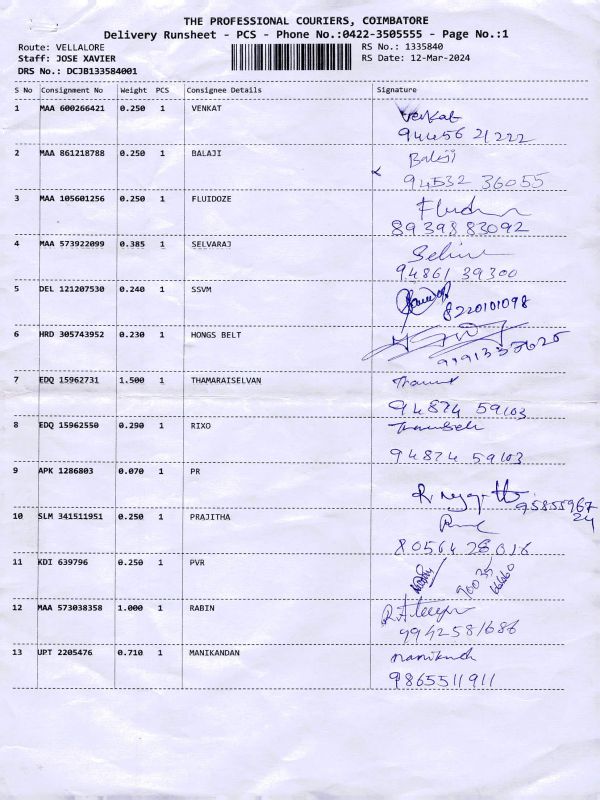 THE PROFESSIONAL COURIERS, COIMBATORE
Delivery Runsheet - PCS - Phone No.:0422-3505555 - Page No.:1
Route: VELLALORE RS No.: 1335840
Staff: JOSE XAVIER RS Date: 12-Mar-2024
DRS No.: DCJB133584001
S No Consignment No Weight PCS Consignee Details Signature
1 MAA 600266421 0.250 1 VENKAT Venkat
94456 21222
2 MAA 861218788 0.250 1 BALAJI Balaji
94532 36055
3 MAA 105601256 0.250 1 FLUIDOZE
89398 83092
4 MAA 573922099 0.385 1 SELVARAJ
94861 39300
5 DEL 121207530 0.240 1 SSVM
8220101098
6 HRD 305743952 0.230 1 HONGS BELT
7 EDQ 15962731 1.500 1 THAMARAISELVAN
94874 59103
8 EDQ 15962550 0.290 1 RIXO
94874 59103
9 APK 1286803 0.070 1 PR
95855967
24
10 SLM 341511951 0.250 1 PRAJITHA
80564 28016
11 KDI 639796 0.250 1 PVR
12 MAA 573038358 1.000 1 RABIN
9942581686
13 UPT 2205476 0.710 1 MANIKANDAN
9865511911